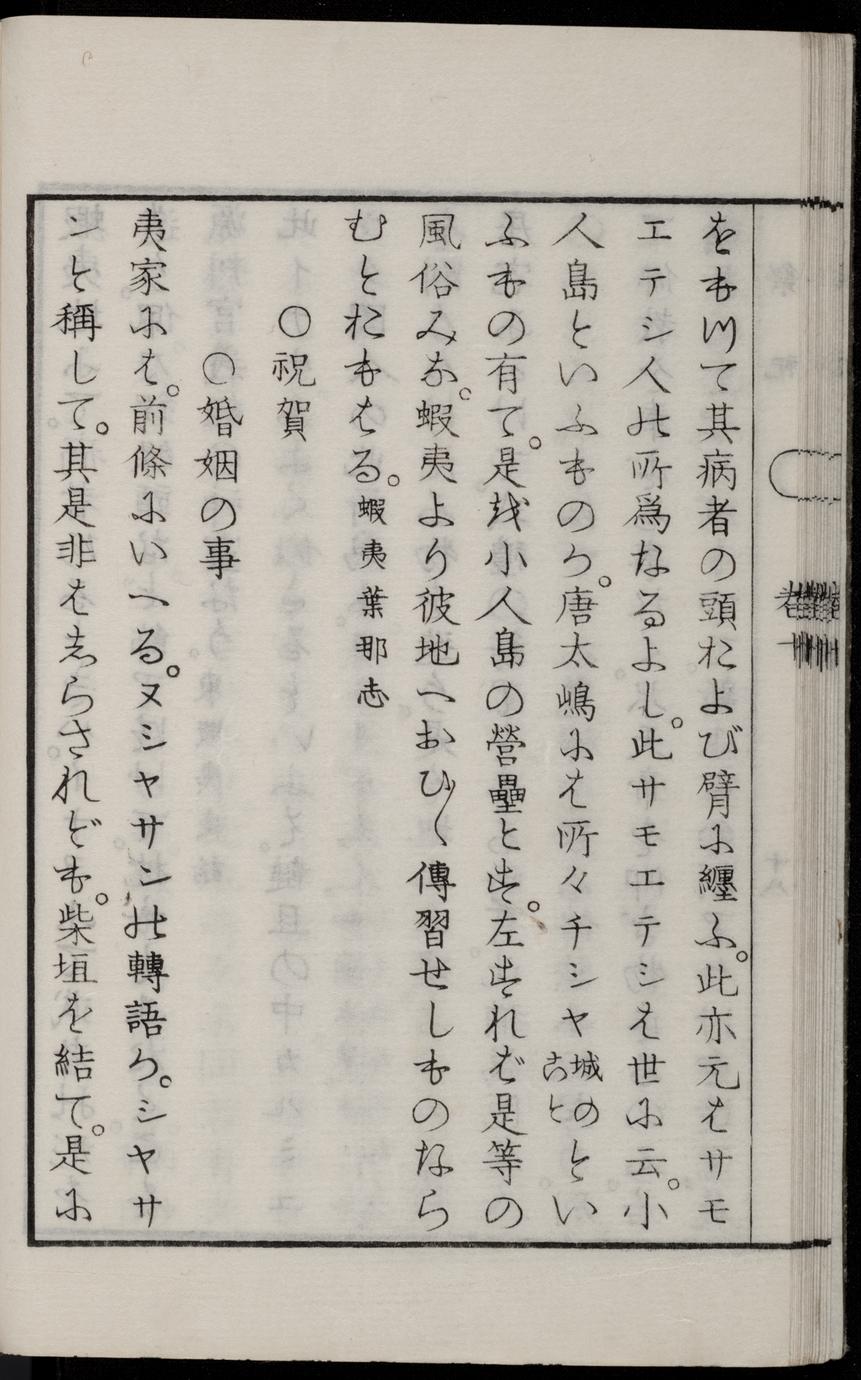 をもつて其病者の頭および臂に纏ふ。此亦元はサモ
エテシ人の所爲なるよし。此サモエテシは世に云。小
人島といふものか。唐太嶋には所々チシヤ城のことい
ふもの有て。是を小人島の營壘とす。左すれば是等の
風俗みな。蝦夷より彼地へおひ〱傳習せしものなら
むとおもはる。蝦夷葉那志
〇祝賀
〇婚姻の事
夷家には。前條にいへる。ヌシヤサンの轉語か。シヤサ
ンと稱して。其是非はしらされども。柴垣を結て。是に